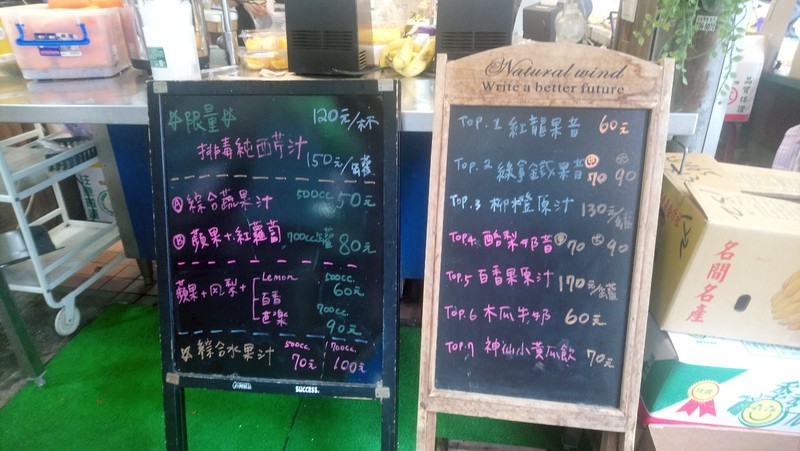 限量
120元/杯
排毒純西芹汁
150元/瓶
A 綜合蔬果汁 500cc 50元
B 蘋果+紅蘿蔔 700cc 80元
蘋果+鳳梨+
Lemon
百香
芭樂
500cc
60元
700cc
90元
綜合水果汁
500cc
70元
700cc
100元
SUCCESS.
Natural wind
Write a better future
TOP.1 紅龍果昔 60元
TOP.2 綠拿鐵果昔 中 70 大 90
TOP.3 柳橙原汁 130元/瓶
TOP.4 酪梨牛奶昔 中 70 大 90
TOP.5 百香果原汁 170元/瓶
TOP.6 木瓜牛奶 60元
TOP.7 神仙小黃瓜飲 70元
名間名產